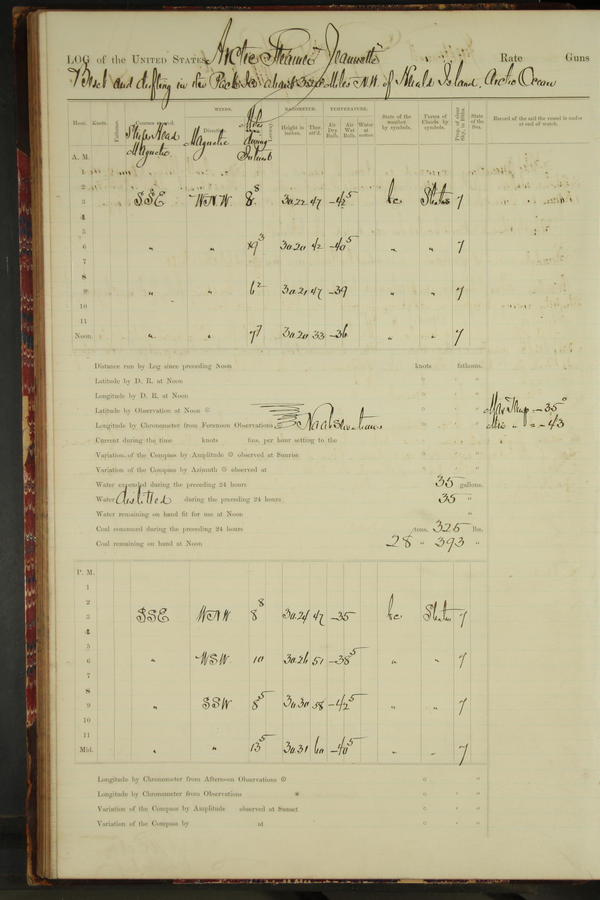 LOG of the UNITED STATES Arctic Steamer Jeannette Rate Guns
Beset and drifting in the Pack Ice about 350 Miles N.W. of Herald Island, Arctic Ocean
WINDS. BAROMETER. TEMPERATURE.
Hour. Knots. Fathoms. Courses Direction Leeway Height in inches. Ther. att'd. Air Dry Bulb. Air Wet Bulb. Water at surface. State of the weather by symbols. Forms of Clouds by symbols. Prop. of clear sky, in 10ths. State of the Sea. Record of the sail the vessel is under at end of watch.
Ship's Head Magnetic Magnetic Miles during
A. M.
1
2
3 SSE WNW 8 8 30.22 47 -42 5 bc Stratus 7
4
5
6 " " 9 3 30.20 42 -40 5 " " 7
7
8
9 " " 6 2 30.21 47 -39 " " 7
10
11
Noon. " " 7 7 30.20 33 -36 " " 7
Distance run by Log since preceding Noon knots fathoms.
Latitude by D. R. at Noon ° ' "
Longitude by D. R. at Noon ° ' "
Latitude by Observation at Noon ° ' "
Max Temp = -35°
Longitude by Chronometer from Forenoon Observations No observations
Min " = -43
Current during the time knots fms. per hour setting to the
Variation of the Compass by Amplitude observed at Sunrise
Variation of the Compass by Azimuth observed at
Water expended during the preceding 24 hours 35 gallons.
Water distilled during the preceding 24 hours 35 "
Water remaining on hand fit for use at Noon "
Coal consumed during the preceding 24 hours tons. 325 lbs.
Coal remaining on hand at Noon 28 " 393 "
P. M.
1
2
3 SSE WNW 8 8 30.24 47 -35 bc Stratus 7
4
5
6 " WSW 10 30.26 51 -38 5 " " 7
7
8
9 " SSW 8 5 30.30 58 -42 5 " " 7
10
11
Mid. " " 13 5 30.31 60 -40 5 " " 7
Longitude by Chronometer from Afternoon Observations ° ' "
Longitude by Chronometer from Observations * ° ' "
Variation of the Compass by Amplitude observed at Sunset ° ' "
Variation of the Compass by at ° ' "